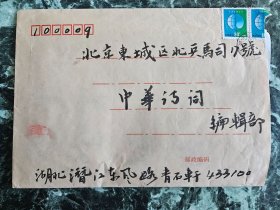 100009
北京東城区北兵馬司17號
中華诗词
編輯部
邮政编码
湖北潜江东风路青石轩 433100